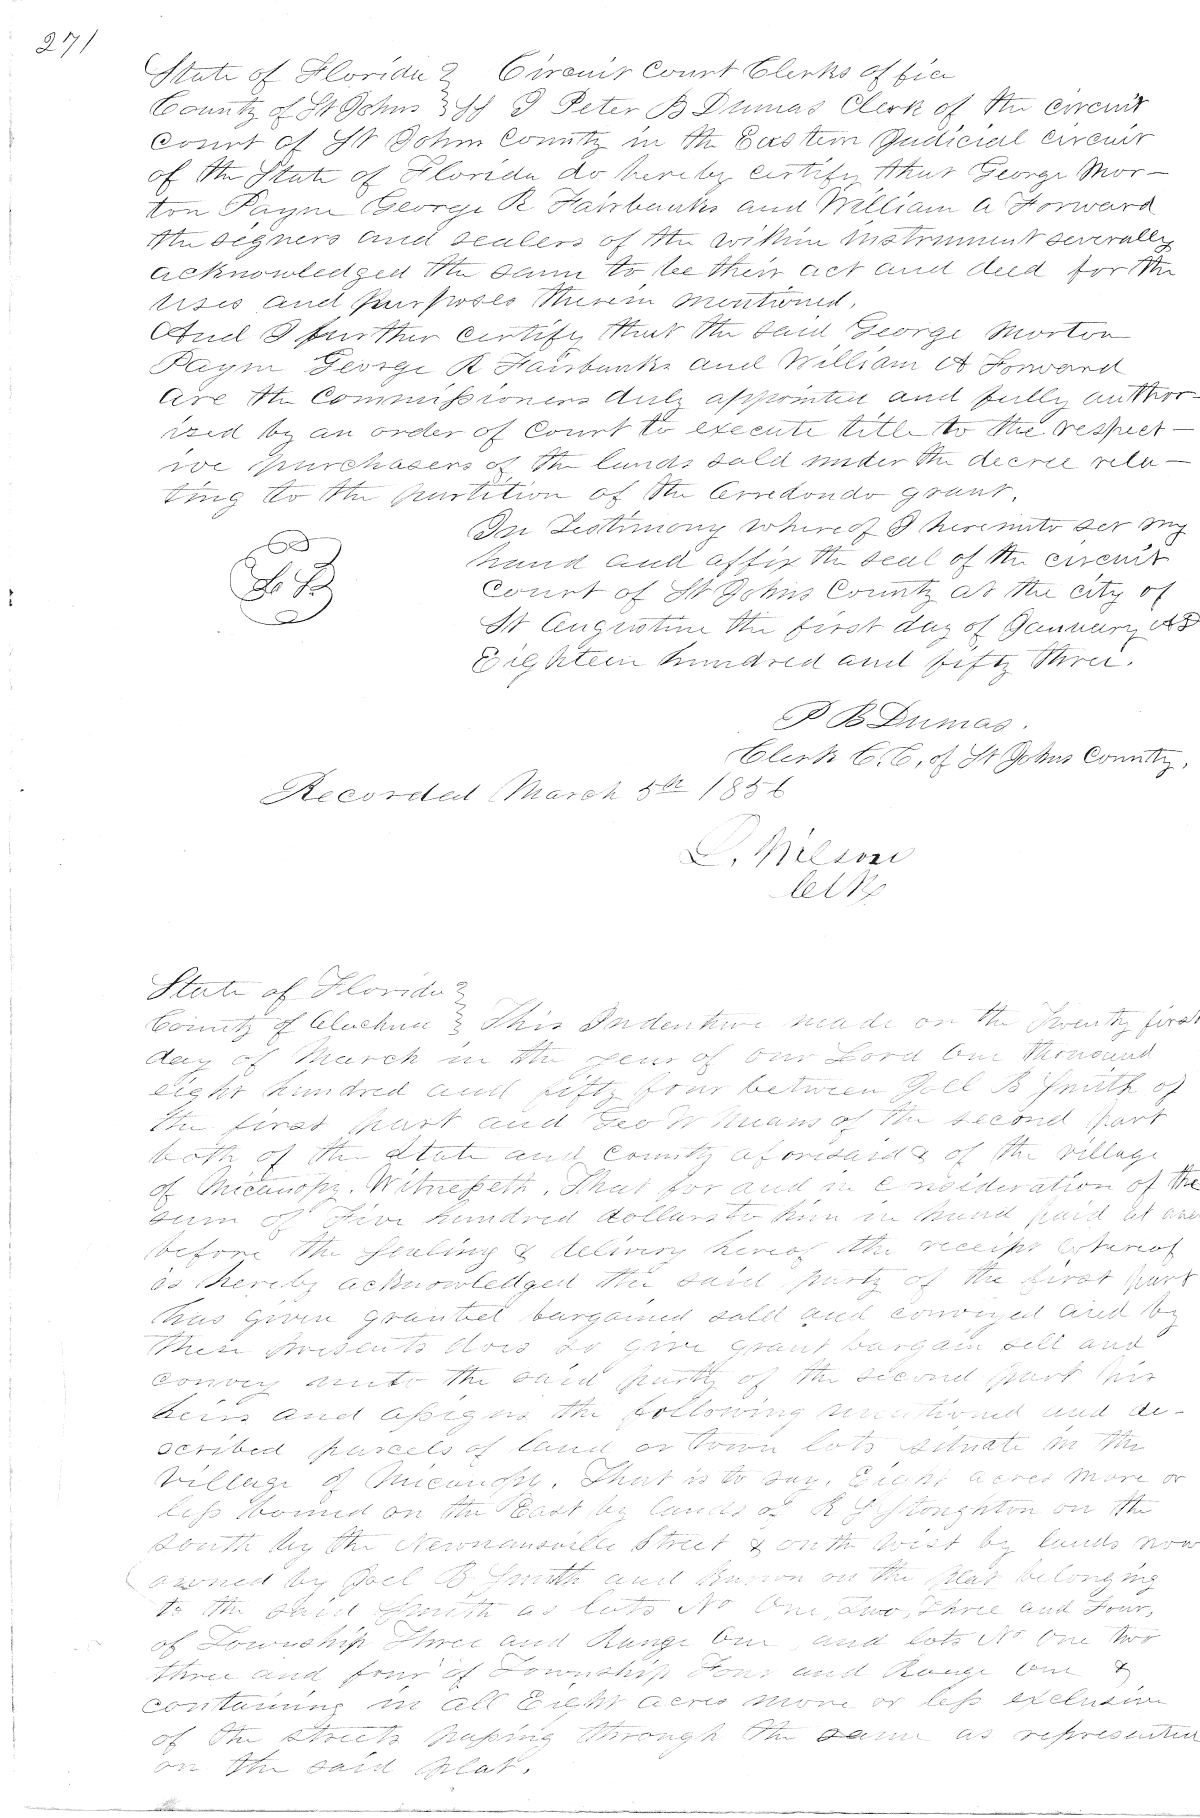 271
State of Florida } Circuit Court Clerks office
County of St Johns } SS I Peter B Dumas Clerk of the circuit
court of St Johns County in the Eastern Judicial circuit
of the State of Florida do hereby certify that George Mor–
ton Payne George R Fairbanks and William A Forward
the signers and sealers of the within instrument severally
acknowledged the same to be their act and deed for the
uses and purposes therein mentioned.
And I further certify that the said George Morton
Payne George R Fairbanks and William A Forward
are the Commissioners duly appointed and fully author-
ized by an order of Court to execute title to the respect–
ive purchasers of the lands sold under the decree rela–
ting to the partition of the Arredondo grant.
In Testimony whereof I hereunto set my
hand and affix the seal of the circuit
Court of St Johns County at the city of
St Augustine the first day of January AD
Eighteen hundred and fifty three.
P B Dumas.
Clerk C.C. of St Johns County.
Recorded March 5th 1856
Wilson
Clk
State of Florida }
County of Alachua } This Indenture made on the Twenty first
day of March in the year of our Lord One thousand
eight hundred and fifty four between Joel B Smith of
the first part and Geo W Means of the second part
both of the State and County aforesaid & of the village
of Micanopy. Witnesseth. That for and in consideration of the
sum of Five hundred dollars to him in hand paid at
before the sealing & delivery hereof the receipt whereof
is hereby acknowledged the said party of the first part
has given granted bargained sold and conveyed and by
these presents does so give grant bargain sell and
convey unto the said party of the second part his
heirs and assigns the following mentioned and de-
scribed parcels of land or town lots situate in the
village of Micanopy. That is to say, Eight acres more or
less bound on the East by lands of Stoughton on the
south by the Newnansville Street & on the west by lands now
owned by Joel B Smith and known on the plat belonging
to the said Smith as lots No One, Two, Three and Four,
of Township Three and Range One and lots No One two
three and four of Township Four and Range One &
containing in all Eight acres more or less exclusive
of the streets passing through the same as represented
on the said plat.